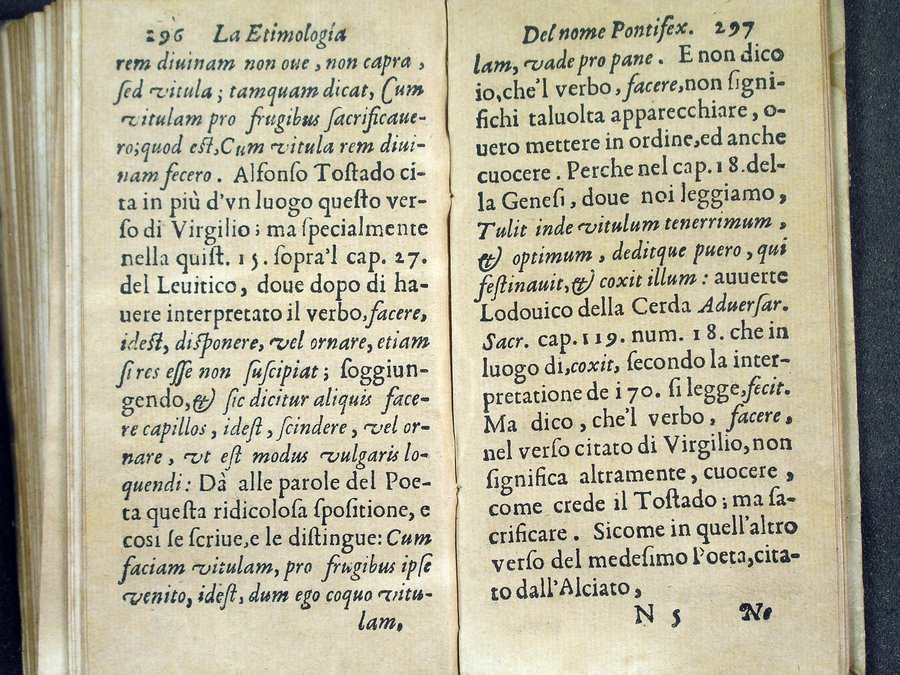 296 La Etimologia
rem diuinam non oue, non capra,
ſed vitula; tamquam dicat, Cum
vitulam pro frugibus ſacrificaue-
ro;quod eſt,Cum vitula rem diui-
nam fecero. Alfonſo Toſtado ci-
ta in più d'vn luogo queſto ver-
ſo di Virgilio; ma ſpecialmente
nella quiſt. 15. ſopra'l cap. 27.
del Leuitico, doue dopo di ha-
uere interpretato il verbo,facere,
ideſt, diſponere, vel ornare, etiam
ſi res eſſe non ſuſcipiat; ſoggiun-
gendo,& ſic dicitur aliquis face-
re capillos, ideſt, ſcindere, vel or-
nare, vt eſt modus vulgaris lo-
quendi: Dà alle parole del Poe-
ta queſta ridicoloſa ſpoſitione, e
coſi ſe ſcriue,e le diſtingue: Cum
faciam vitulam, pro frugibus ipſe
venito, ideſt, dum ego coquo vitu-
lam,
Del nome Pontifex. 297
lam, vade pro pane. E non dico
io,che'l verbo, facere,non ſigni-
fichi taluolta apparecchiare, o-
uero mettere in ordine,ed anche
cuocere. Perche nel cap.18.del-
la Geneſi, doue noi leggiamo,
Tulit inde vitulum tenerrimum,
& optimum, deditque puero, qui
feſtinauit,& coxit illum: auuerte
Lodouico della Cerda Aduerſar.
Sacr. cap.119. num. 18. che in
luogo di,coxit, ſecondo la inter-
pretatione de i 70. ſi legge,fecit.
Ma dico, che'l verbo, facere,
nel verſo citato di Virgilio,non
ſignifica altramente, cuocere,
come crede il Toſtado; ma ſa-
crificare. Sicome in quell'altro
verſo del medeſimo Poeta,cita-
to dall'Alciato,
N 5 Ne